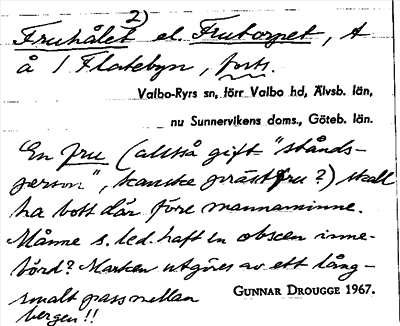 2)
Fruhålet el. Frutorpet, t
å 1 Flatebyn, forts.
Valbo-Ryrs sn, förr Valbo hd, Älvsb. län,
nu Sunnervikens doms., Göteb. län.
En fru (alltså gift "stånds-
person", kanske prästfru?) skall
ha bott där före mannaminne.
Månne s. led. haft en obscen inne-
börd? Marken utgöres av ett lång-
smalt pass mellan
bergen!!
GUNNAR DROUGGE 1967.